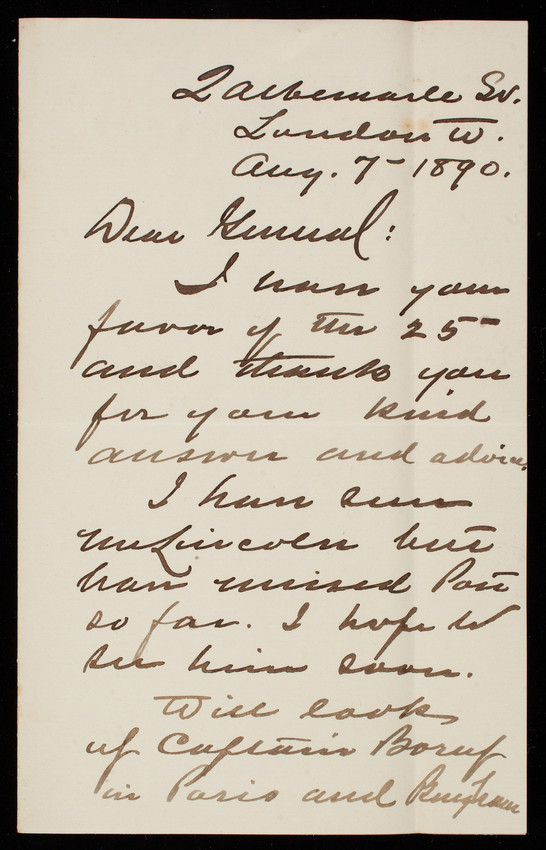 2 Albemarle St.
London W.
Aug. 7 - 1890.
Dear General:
I have your
favor of the 25
and thank you
for your kind
answer and advice.
I have seen
Mr Lincoln but
have missed
so far. I hope to
see him soon.
Will look
up Captain Borup
in Paris and Bingham